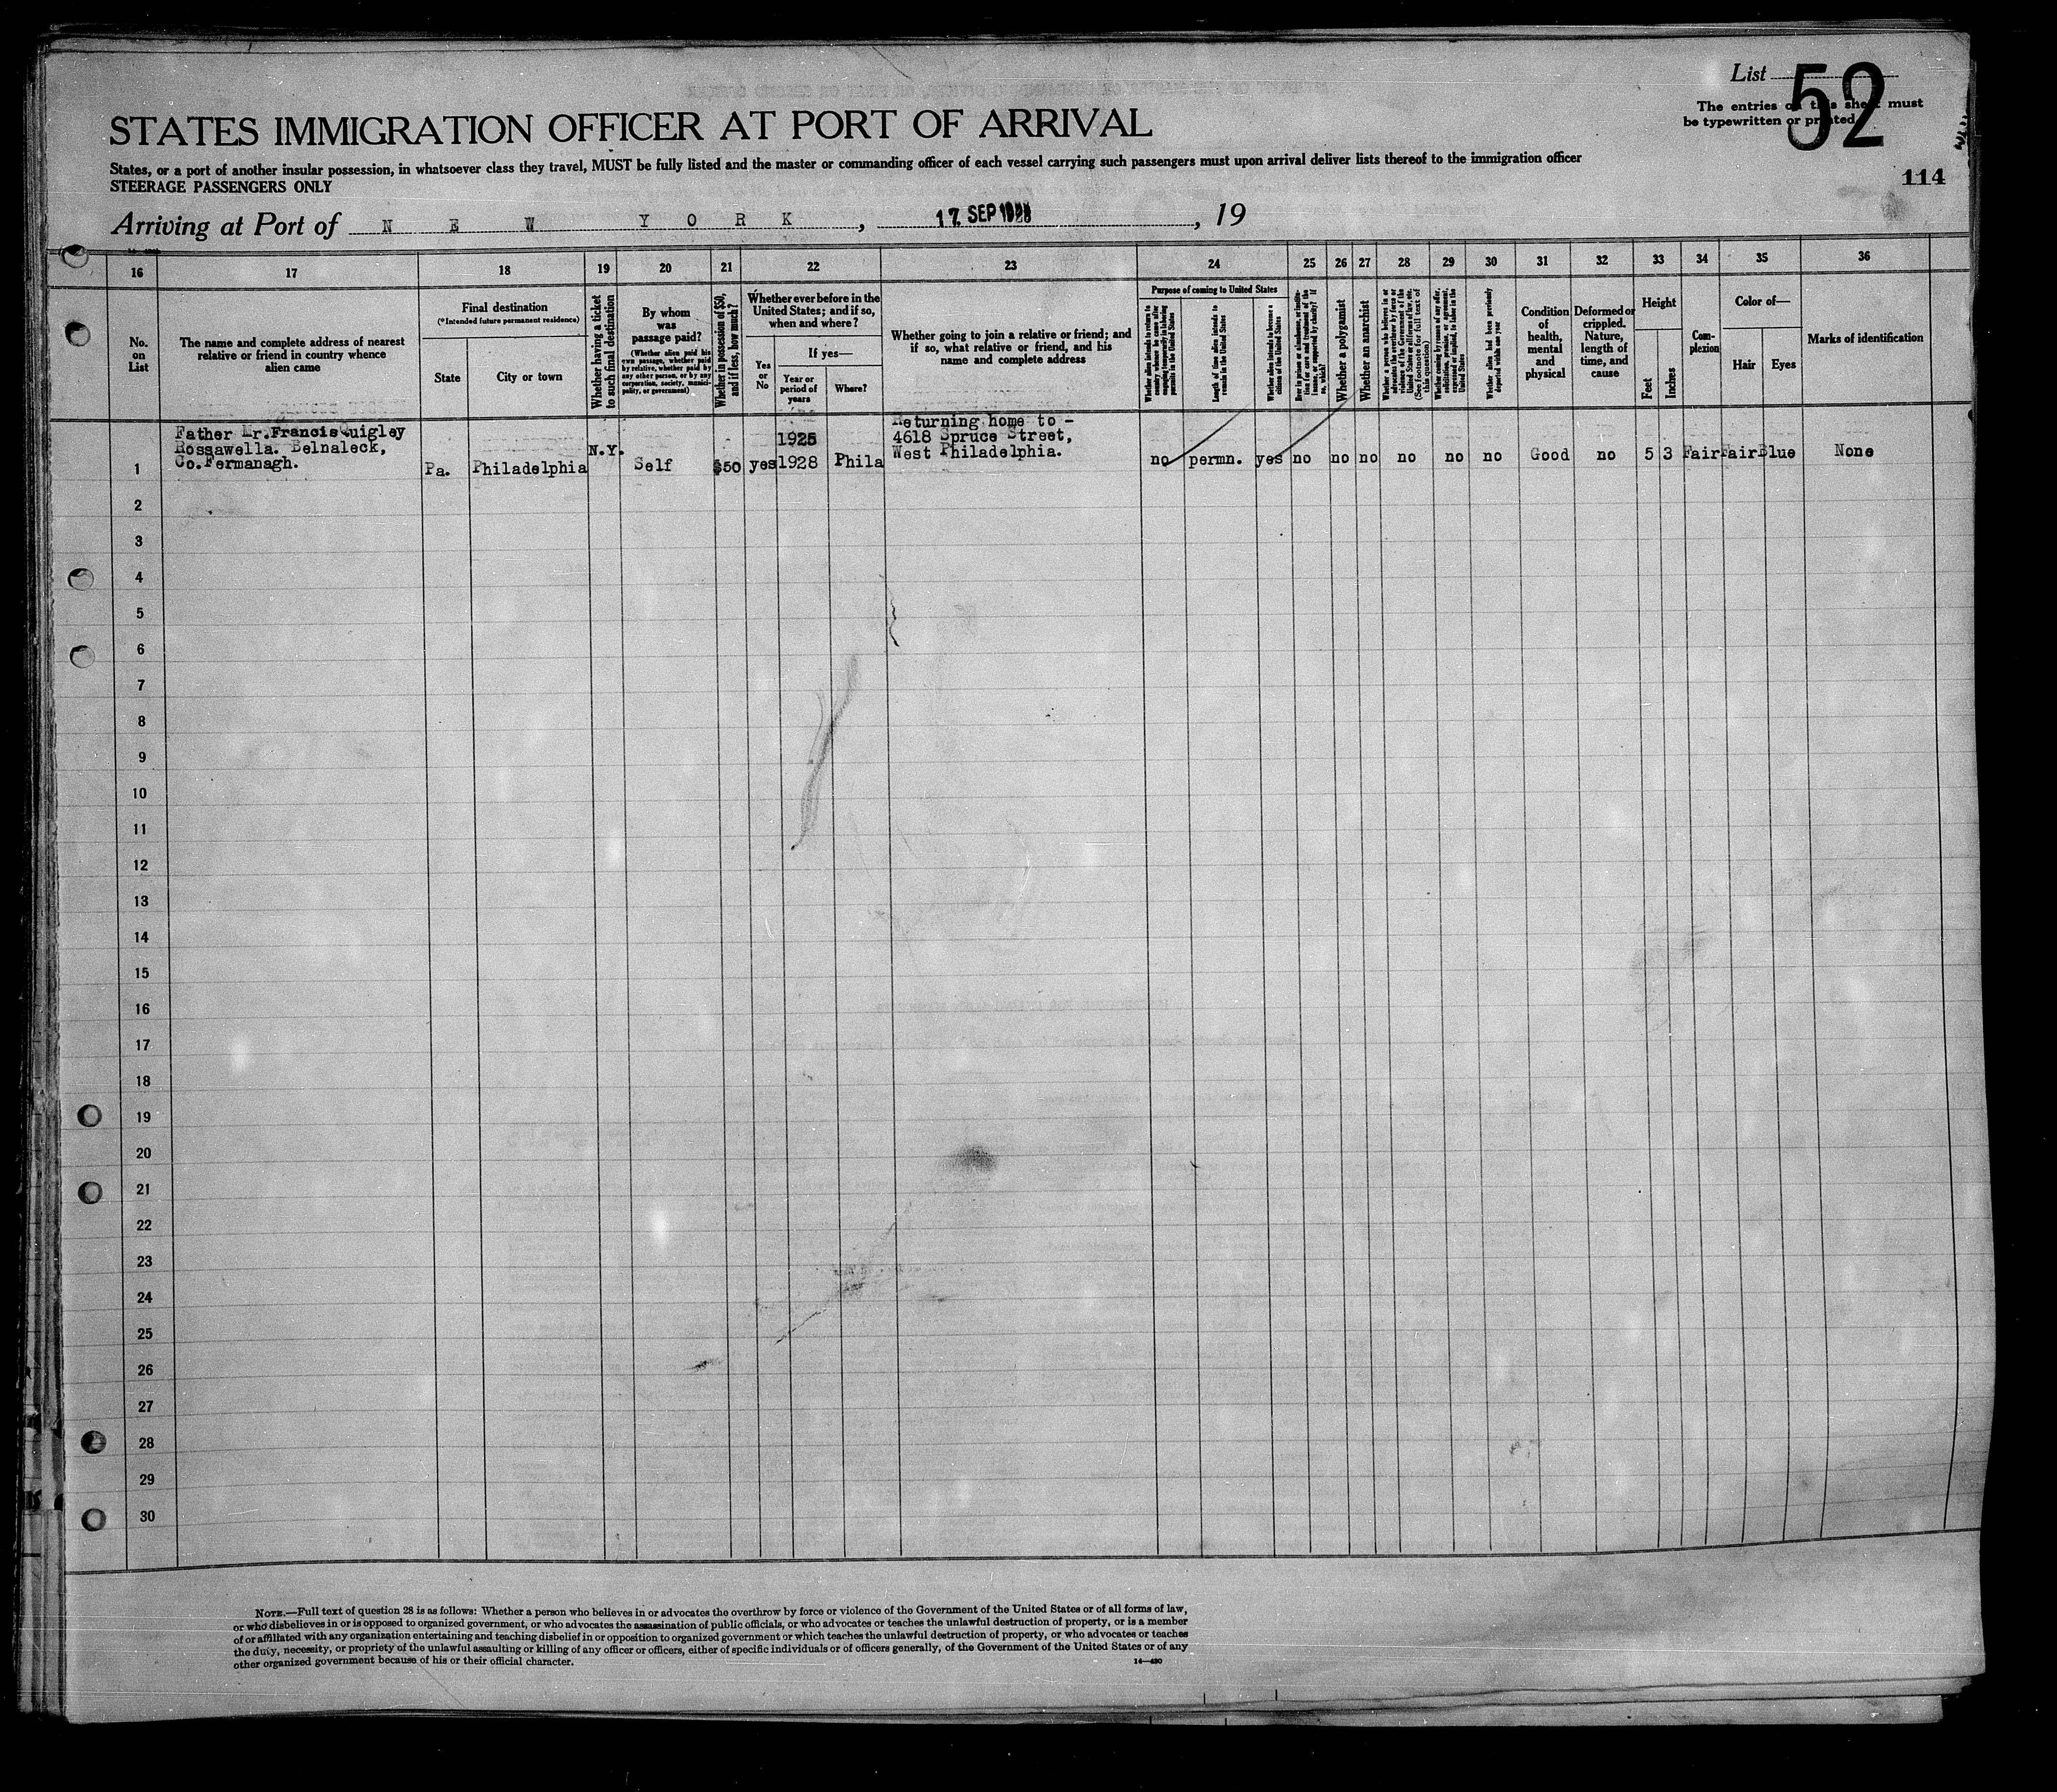 List 52
The entries on this sheet must
be typewritten or printed
STATES IMMIGRATION OFFICER AT PORT OF ARRIVAL
States, or a port of another insular possession, in whatsoever class they travel, MUST be fully listed and the master or commanding officer of each vessel carrying such passengers must upon arrival deliver lists thereof to the immigration officer
STEERAGE PASSENGERS ONLY
114
Arriving at Port of NEW YORK, 17 SEP 1928, 19
16 17 18 19 20 21 22 23 24 25 26 27 28 29 30 31 32 33 34 35 36
No. on List
The name and complete address of nearest relative or friend in country whence alien came
Final destination
(*Intended future permanent residence)
State
City or town
Whether having a ticket to such final destination
By whom was passage paid?
(Whether alien paid his own passage, whether paid by relative, whether paid by any other person, or by any corporation, society, municipality, or government)
Whether in possession of $50, and if less, how much?
Whether ever before in the United States; and if so, when and where?
Yes or No
If yes—
Year or period of years
Where?
Whether going to join a relative or friend; and if so, what relative or friend, and his name and complete address
Purpose of coming to United States
Length of time alien intends to remain in the United States
Whether alien intends to become a citizen of the United States
Whether a polygamist
Whether an anarchist
Condition of health, mental and physical
Deformed or crippled. Nature, length of time, and cause
Height
Feet
Inches
Complexion
Color of—
Hair
Eyes
Marks of identification
1
Father Mr. Francis Quigley
Rossawella. Belnaleck,
Co. Fermanagh.
Pa. Philadelphia N.Y. Self $50 yes 1925
1928 Phila
Returning home to -
4618 Spruce Street,
West Philadelphia.
no permn. yes no no no no no no Good no 5 3 Fair Fair Blue None
2
3
4
5
6
7
8
9
10
11
12
13
14
15
16
17
18
19
20
21
22
23
24
25
26
27
28
29
30
NOTE.—Full text of question 28 is as follows: Whether a person who believes in or advocates the overthrow by force or violence of the Government of the United States or of all forms of law,
or who disbelieves in or is opposed to organized government, or who advocates the assassination of public officials, or who advocates or teaches the unlawful destruction of property, or is a member
of or affiliated with any organization entertaining and teaching disbelief in or opposition to organized government or which teaches the unlawful destruction of property, or who advocates or teaches
the duty, necessity, or propriety of the unlawful assaulting or killing of any officer or officers, either of specific individuals or of officers generally, of the Government of the United States or of any
other organized government because of his or their official character.
14—430